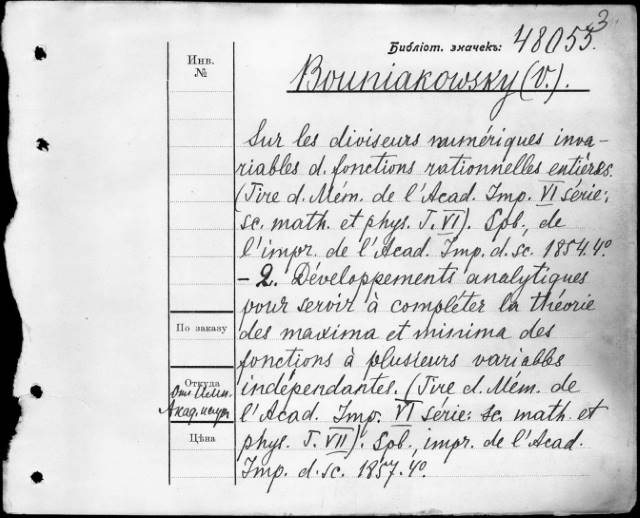 3.
Библіот. значекъ: 48055.
Инв.
№
Bouniakowsky (V.).
Sur les diviseurs numériques inva-
riables d. fonctions rationnelles entières.
(Tire d. Mém. de l'Acad. Imp. VI série:
sc. math. et phys. T. VI). Spb., de
l'impr. de l'Acad. Imp. d. sc. 1854. 4º
- 2. Développements analytiques
pour servir à compléter la théorie
des maxima et minima des
fonctions à plusieurs variables
indépendantes. (Tire d. Mém. de
l'Acad. Imp. VI série: sc. math. et
phys. T. VII). Spb., impr. de l'Acad.
Imp. d. sc. 1857. 4º
По заказу
Откуда
Акад. наукъ
Цѣна